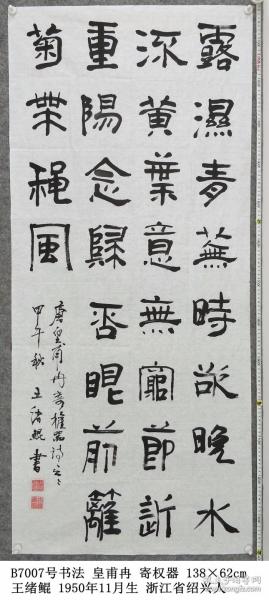 露濕青蕪時欲晚水
流黃葉意無窮節近
重陽念歸否眼前籬
菊帶秋風
唐皇甫冉寄權器詩
甲午秋 王緒鯤書
B7007号书法 皇甫冉 寄权器 138×62cm
王绪鲲 1950年11月生 浙江省绍兴人